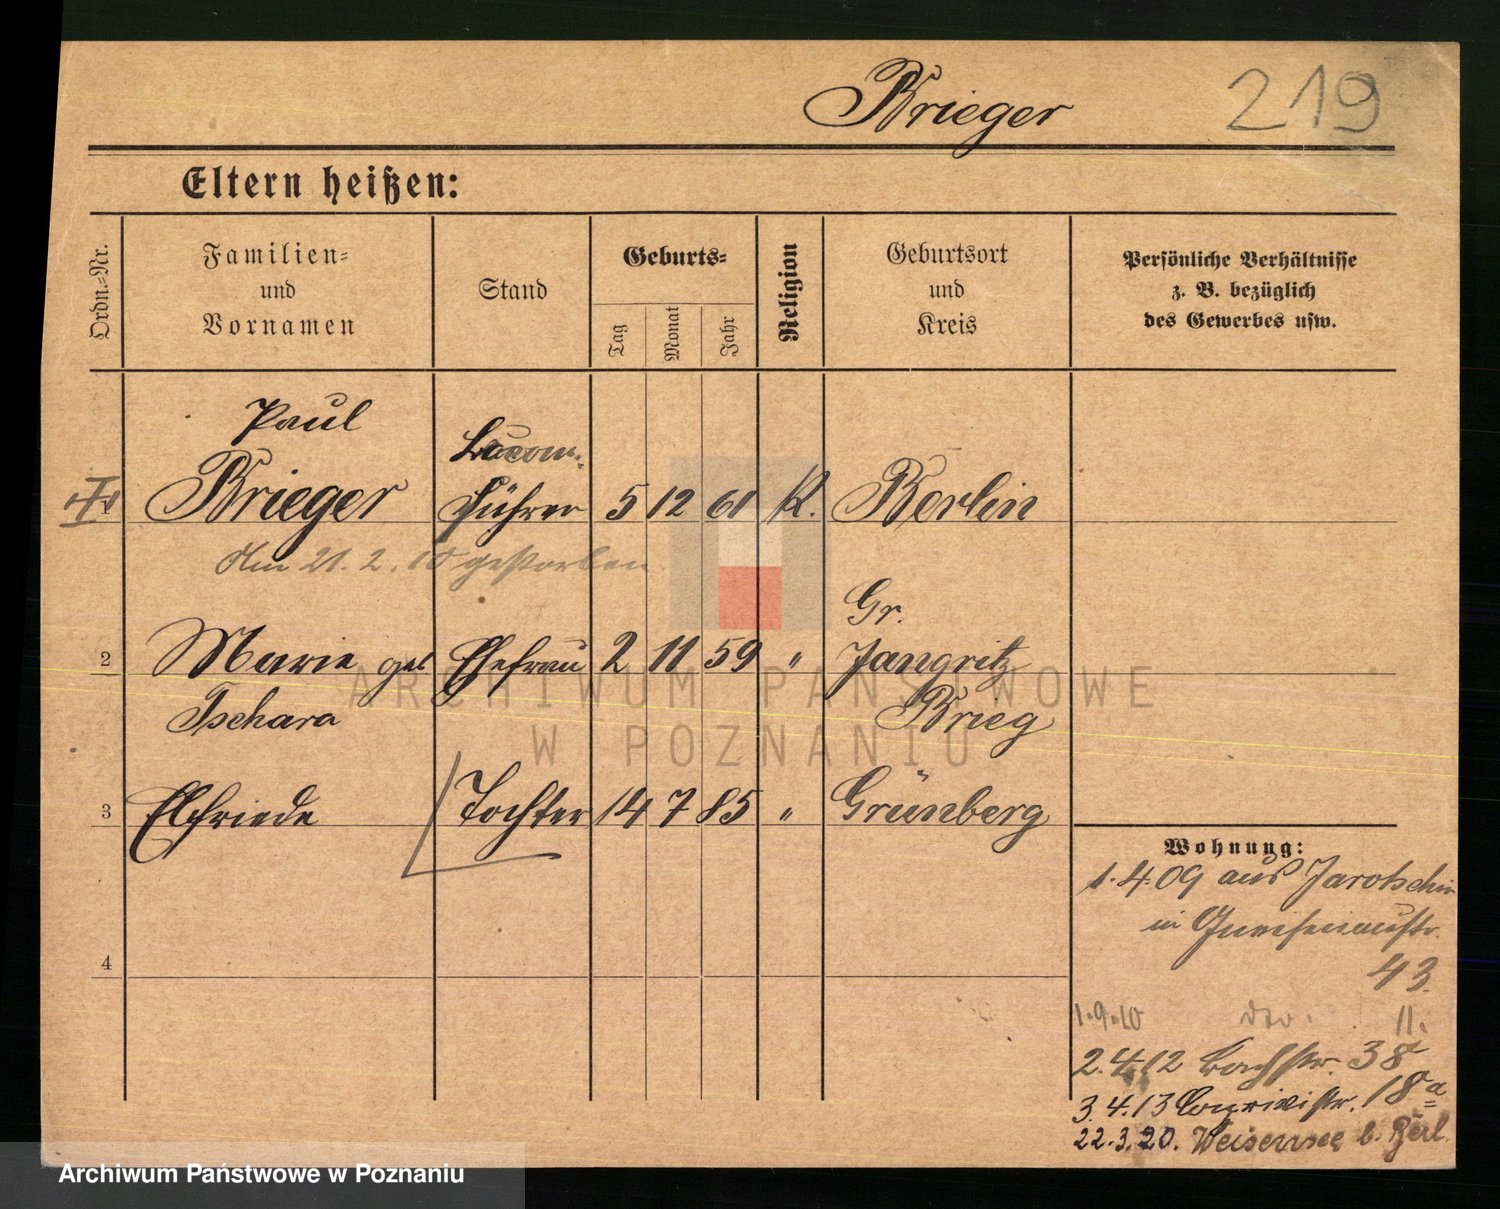 Krieger
219
Eltern heißen:
Ordn.-Nr.
Familien-
und
Vornamen
Stand
Geburts-
Tag
Monat
Jahr
Religion
Geburtsort
und
Kreis
Persönliche Verhältnisse
z. B. bezüglich
des Gewerbes usw.
Paul
Krieger
Locom.
Führer
5 12 61 K. Berlin
Am 21. 2. 10 gestorben
2 Marie geb Ehefrau 2 11 59 " Gr.
Jangwitz
Tschara
Brieg
3 Elfriede Tochter 14 7 85 " Grünberg
4
Wohnung:
1.4.09 aus Jarotschin
in Gneisenaustr.
43
1.9.10 dto. 11.
2.4.12 Bachstr. 38
3.4.13 Caprivistr. 18a
22.3.20. Weisensee b. Berl.
ARCHIWUM PAŃSTWOWE
W POZNANIU
Archiwum Państwowe w Poznaniu